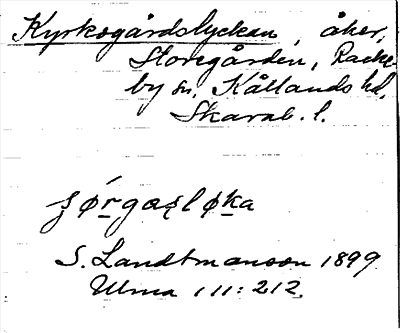 Kyrkogårdslyckan, åker,
Storegården, Racke-
by sn, Kållands hd,
Skarab. l.
S. Landtmanson 1899
Ulma 111:212